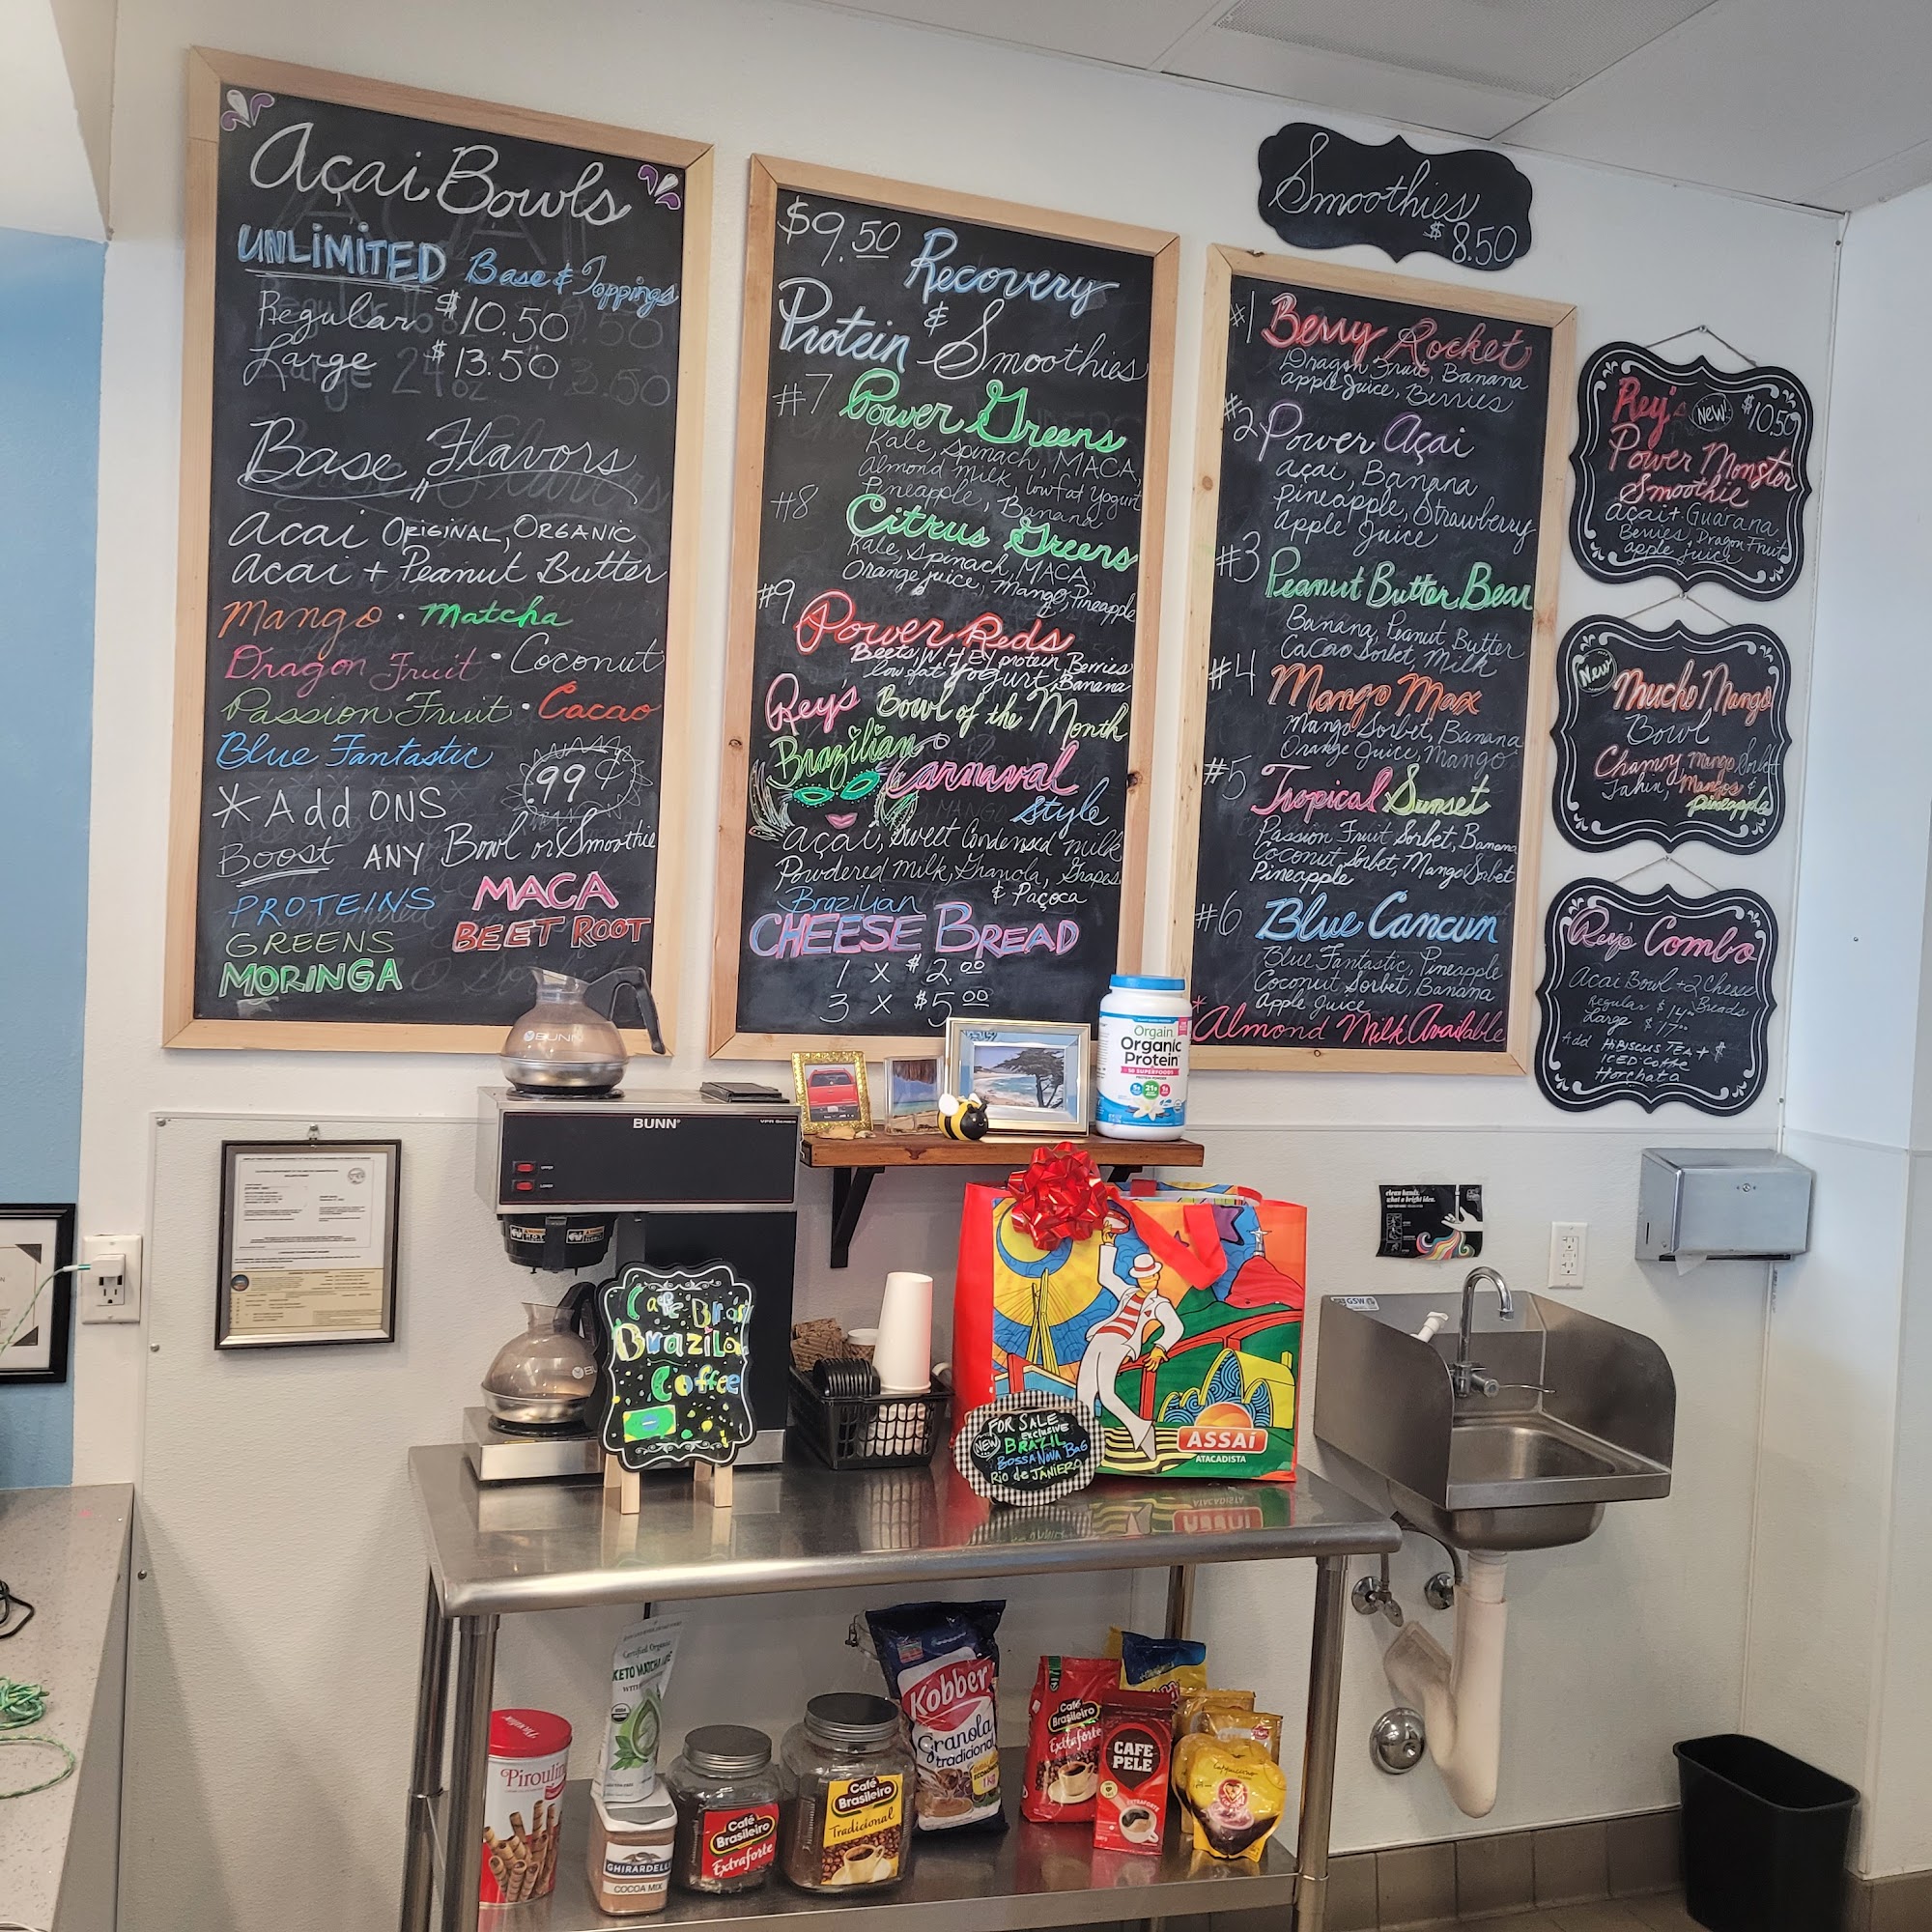 Açai Bowls
UNLIMITED Base & Toppings
Regular $10.50
Large $13.50
Base Flavors
Acai ORIGINAL, ORGANIC
Acai + Peanut Butter
Mango · Matcha
Dragon Fruit · Coconut
Passion Fruit · Cacao
Blue Fantastic
.99¢
*Add ONS
Boost ANY Bowl or Smoothie
PROTEINS MACA
GREENS BEET ROOT
MORINGA
$9.50 Recovery
&
Protein Smoothies
#7 Power Greens
Kale, Spinach, MACA,
Almond Milk, lowfat Yogurt
Pineapple, Banana
#8 Citrus Greens
Kale, Spinach, MACA,
Orange juice, Mango, Pineapple
#9 Power Reds
Beets, WHEY protein, Berries
lowfat Yogurt, Banana
Rey's Bowl of the Month
Brazilian
Carnaval
Style
Açai, Sweet Condensed milk
Powdered Milk, Granola, Grapes
& Paçoca
Brazilian
CHEESE BREAD
1 X $2.00
3 X $5.00
Smoothies
$8.50
#1 Berry Rocket
Dragon Fruit, Banana
apple Juice, Berries
#2 Power Açai
açai, Banana
Pineapple, Strawberry
Apple Juice
#3 Peanut Butter Bear
Banana, Peanut Butter
CaCao Sorbet, Milk
#4 Mango Max
Mango Sorbet, Banana
Orange Juice, Mango
#5 Tropical Sunset
Passion Fruit Sorbet, Banana
Coconut Sorbet, Mango Sorbet
Pineapple
#6 Blue Cancun
Blue Fantastic, Pineapple
Coconut Sorbet, Banana
Apple Juice
*Almond Milk Available
Rey's New! $10.50
Power Monster
Smoothie
açai + Guarana
Berries, Dragon Fruit
apple juice
New
Mucho Mango
Bowl
Chamoy Mango Sorbet
Tahin, Mangos &
Pineapple
Rey's Combo
Acai Bowl + 2 Cheese
Breads
Regular $14.00
Large $17.00
Add HIBISCUS TEA +
ICED COFFEE
Horchata
BUNN
BUNN®
VPR SERIES
UPPER
LOWER
Orgain
Organic
Protein
10 SUPERFOODS
21g
clean hands.
what a bright idea.
GSW
Brazilan
Coffee
FOR SALE
NEW EXCLUSIVE
BRAZIL
BOSSA NOVA BAG
Rio de JANIERO
ASSAÍ
ATACADISTA
Certified Organic
KETO MATCHA
Kobber
Granola
tradicional
1kg
Café
Brasileiro
Extraforte
CAFE
PELE
EXTRAFORTE
GHIRARDELLI
COCOA MIX
Café
Brasileiro
Extraforte
Café
Brasileiro
Tradicional